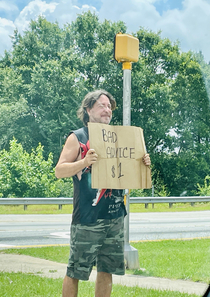 BAD
ADVICE
$1